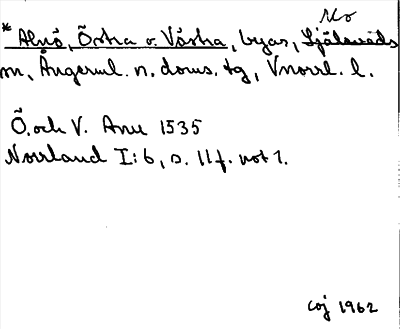 No
* Alnö, Östra o. Västra, byar, Själevads
m, Ångerml. n. doms. tg, Vnorrl. l.
Ö. och V. Anu 1535
Norrland I:6, s. 11 f. not 1.
coj 1962